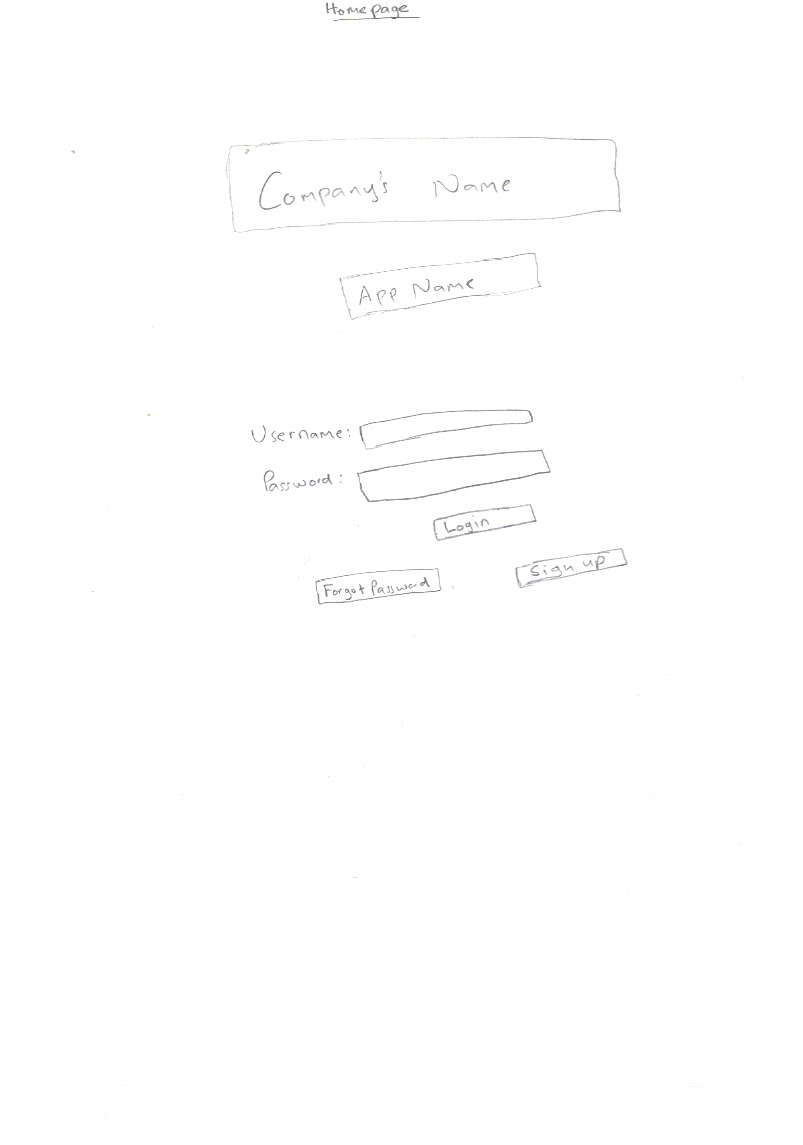 Homepage
Company's Name
App Name
Username:
Password:
Login
Forgot Password
Sign up